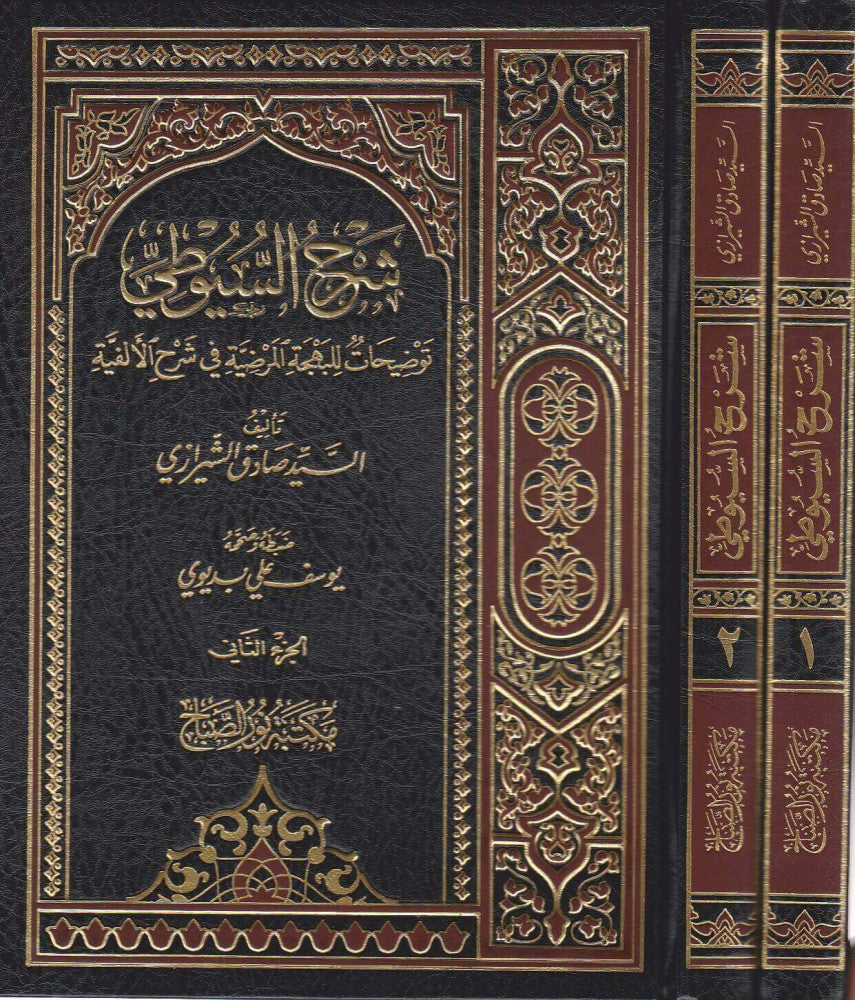 شرح السيوطي
توضيحات للبهجة المرضية في شرح الألفية
تأليف
السيد صادق الشيرازي
ضبطه وصححه
يوسف علي بديوي
الجزء الثاني
مكتبة نور الصباح
السيد صادق الشيرازي
شرح السيوطي
٢
مكتبة نور الصباح
السيد صادق الشيرازي
شرح السيوطي
١
مكتبة نور الصباح